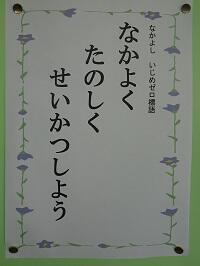 なかよし　いじめゼロ標語
なかよく
たのしく
せいかつしよう